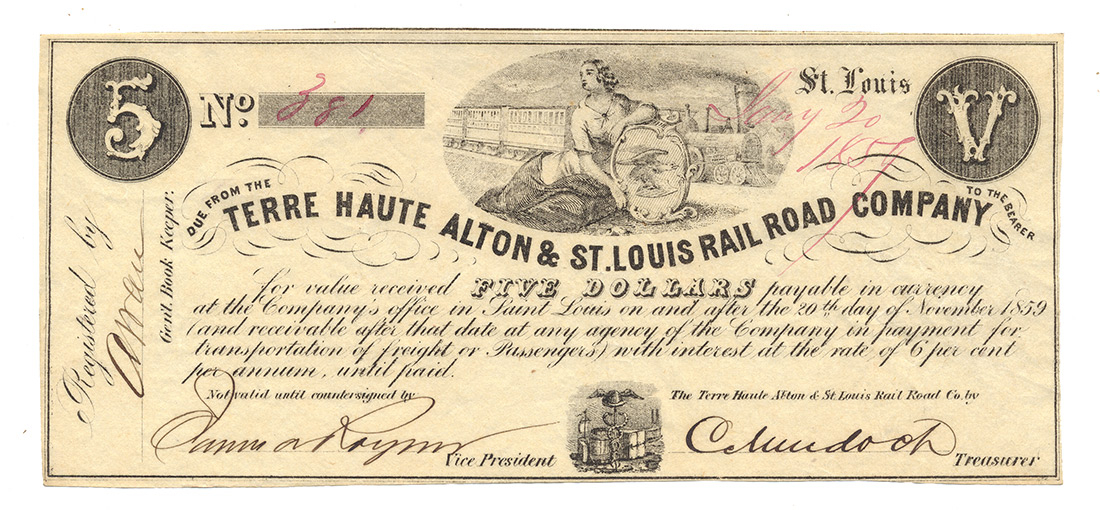 5
No. 381.
St. Louis
20
V
DUE FROM THE
TERRE HAUTE ALTON & ST. LOUIS RAIL ROAD COMPANY
TO THE BEARER
for value received FIVE DOLLARS payable in currency
at the Company's office in Saint Louis on and after the 20th day of November 1859
(and receivable after that date at any agency of the Company in payment for
transportation of freight or Passengers) with interest at the rate of 6 per cent
per annum, until paid.
Not valid until countersigned by
The Terre Haute Alton & St. Louis Rail Road Co. by
Vice President
C Murdoch
Treasurer
Registered by
Genl. Book Keeper.